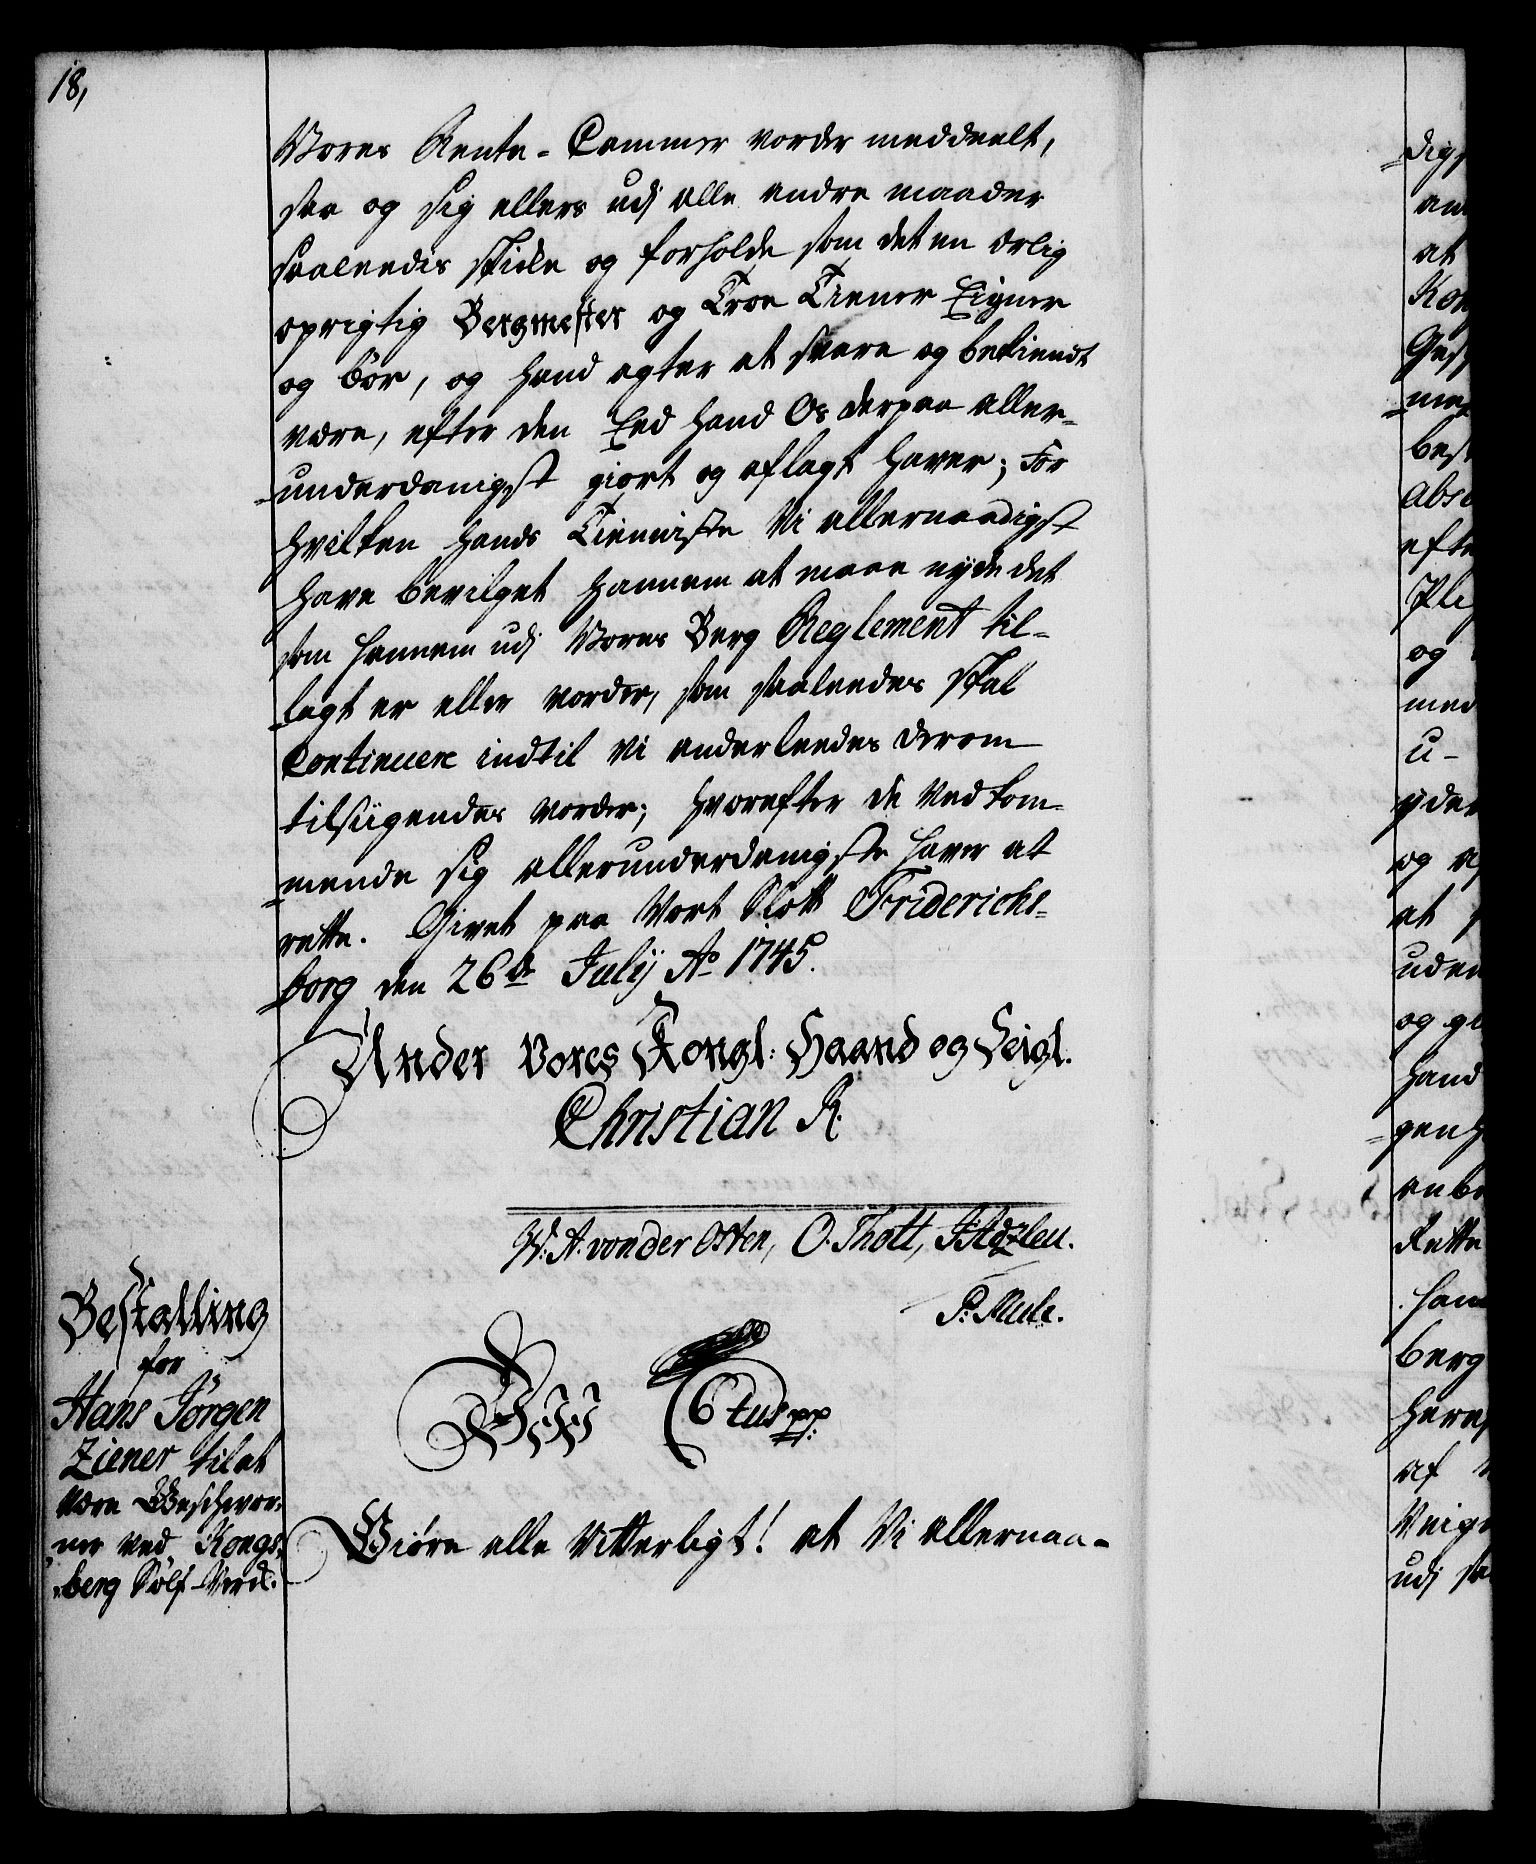 18,
Vores Rente-Cammer vorder meddeelt,
saa og sig ellers udj alle andre maader
saaleedis skicke og forholde som det en ærlig
oprigtig Bergmester og Troe Tiener Eigner
og bør, og hand agter at svare og bekiendt
være, efter den Eed hand Os derpaa aller-
underdanigst giort og aflagt haver; For
hvilken hands Tienniste Vi allernaadigst
have bevilget hannem at maae nyde det
som hannem udj Vores Berg Reglement til-
lagt er eller vorder, som saaleedes skal
Continuere indtil Vi anderleedes derom
tilsiigendes vorder; hvorefter de Vedkom-
mende sig allerunderdanigste haver at
rette. Givet paa Vort Slott Friderichs-
borg den 26de Julij Ao 1745.
Under Vores Kongl: Haand og Seigl.
Christian R.
W: A. von der Osten, O. Thott,
P: Mule.
Bestalling
for
Hans Jörgen
Ziener til at
være Geschwor-
ner ved Kongs-
berg Sølf-Verck.
CVI Ctus pp:
Giøre alle Vitterligt! at Vi allernaa-
at
og
u-
og
at
hand
Rette
berg
af
udj